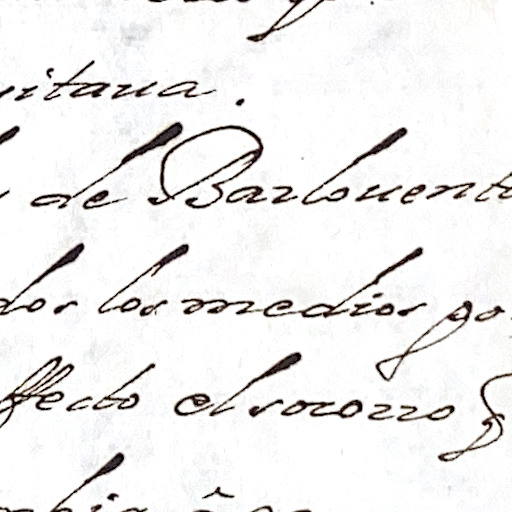 itana.
de Barlouento
dos los medios po
ffecto el socorro q